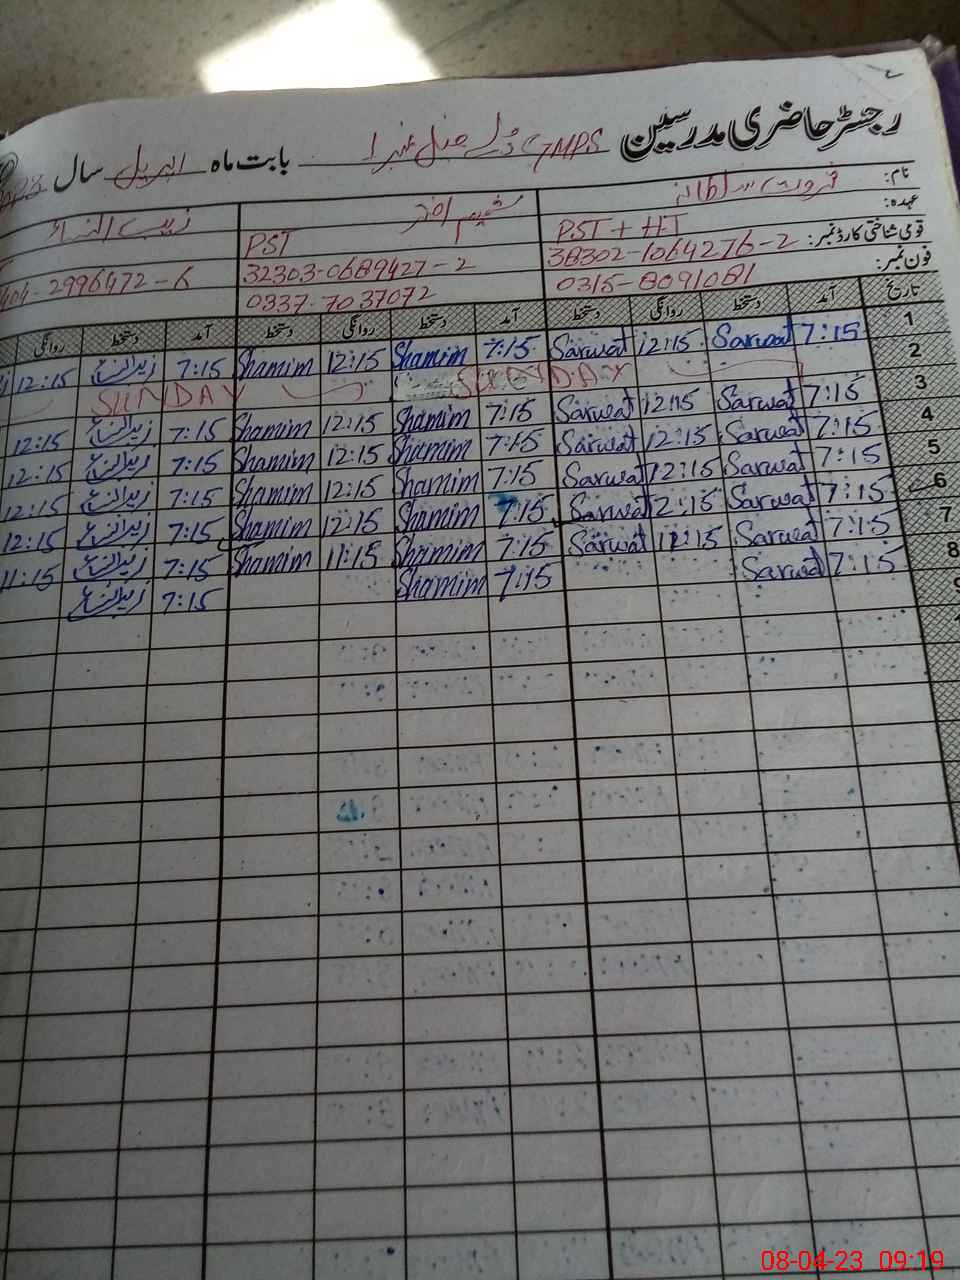 رجسٹر حاضری مدرسین GMPS ڈلے منگل نمبر 1 بابت ماہ اپریل سال 2023
نام: ثروت سلطانہ شمیم اختر زیب النساء
عہدہ: PST + HT PST
قومی شناختی کارڈ نمبر: 38302-1064276-2 32303-0689427-2 404-2996472-6
فون نمبر: 0315-8091081 0337-7037072
تاریخ آمد دستخط روانگی دستخط آمد دستخط روانگی دستخط آمد دستخط روانگی
1 7:15 Sarwat 12:15 Sarwat 7:15 Shamim 12:15 Shamim 7:15 زیب النساء 12:15
2 SUNDAY SUNDAY
3 7:15 Sarwat 12:15 Sarwat 7:15 Shamim 12:15 Shamim 7:15 زیب النساء 12:15
4 7:15 Sarwat 12:15 Sarwat 7:15 Shamim 12:15 Shamim 7:15 زیب النساء 12:15
5 7:15 Sarwat 12:15 Sarwat 7:15 Shamim 12:15 Shamim 7:15 زیب النساء 12:15
6 7:15 Sarwat 12:15 Sarwat 7:15 Shamim 12:15 Shamim 7:15 زیب النساء 12:15
7 7:15 Sarwat 11:15 Sarwat 7:15 Shamim 11:15 Shamim 7:15 زیب النساء 11:15
8 7:15 Sarwat 7:15 Shamim 7:15 زیب النساء
9
08-04-23 09:19